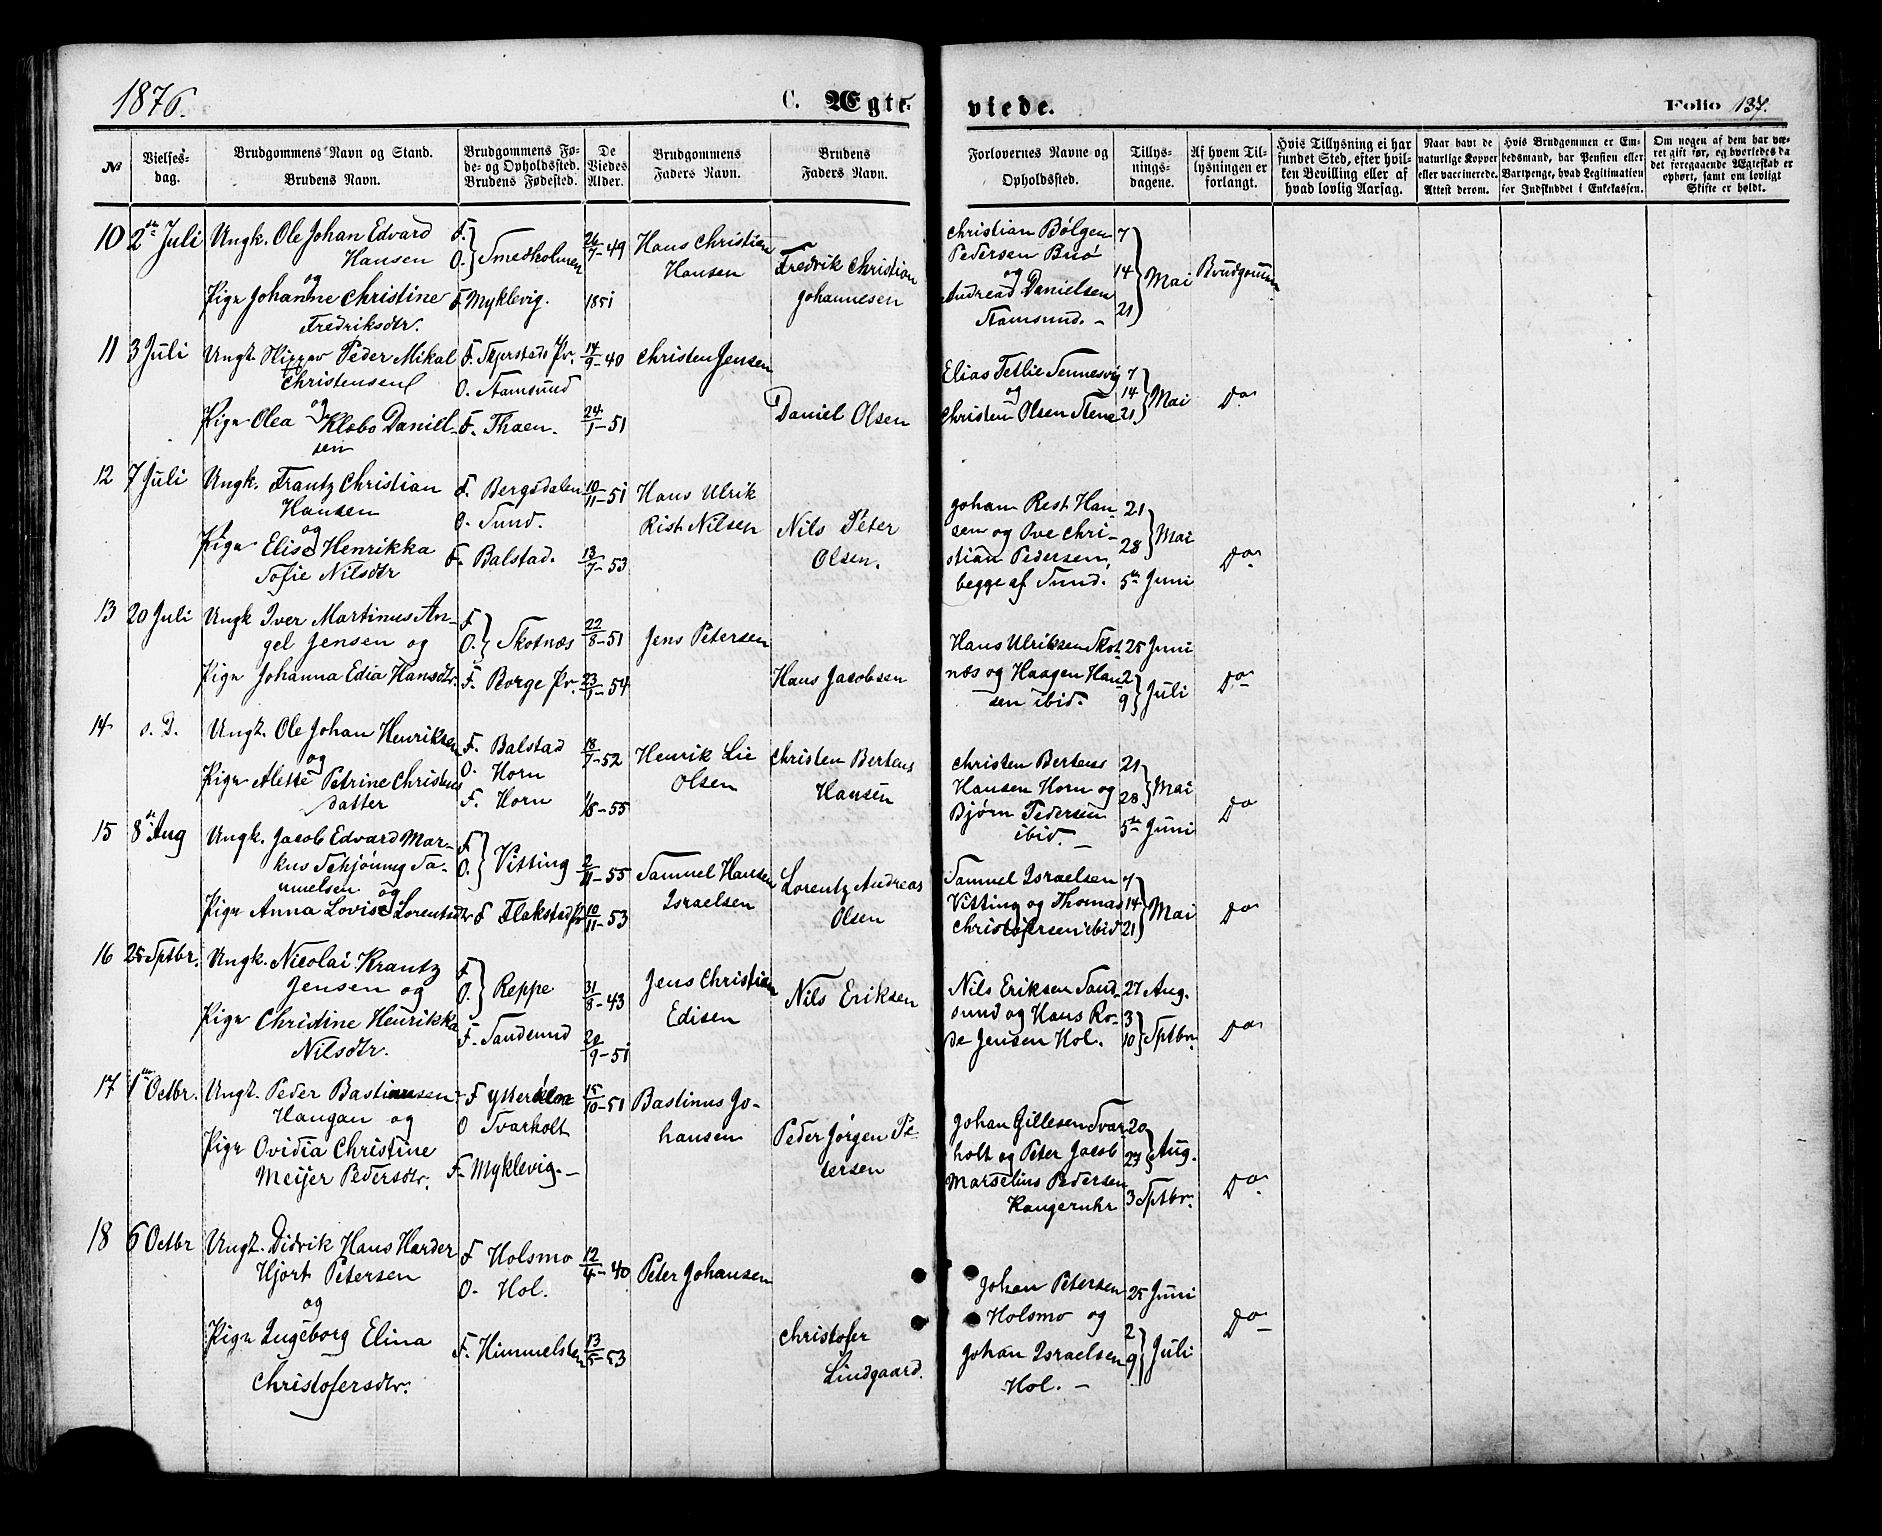 1876.
C. Ægte-
viede.
Folio 137.
No
Vielses-
dag.
Brudgommens Navn og Stand.
Brudens Navn.
Brudgommens Fø-
de- og Opholdssted.
Brudens Fødested.
De
Viedes
Alder.
Brudgommens
Faders Navn.
Brudens
Faders Navn.
Forlovernes Navne og
Opholdssted.
Tillys-
nings-
dagene.
Af hvem Til-
lysningen er
forlangt.
Hvis Tillysning ei har
fundet Sted, efter hvil-
ken Bevilling eller af
hvad lovlig Aarsag.
Naar havt de
naturlige Kopper
eller vaccinerede.
Attest derom.
Hvis Brudgommen er Em-
bedsmand, har Pension eller
Vartpenge, hvad Legitimation
for Indskuddet i Enkekassen.
Om nogen af dem har væ-
ret gift før, og hvorledes da
det foregaaende Ægteskab er
ophørt, samt om lovligt
Skifte er holdt.
10 2de Juli
Ungk. Ole Johan Edvard
Hansen
og
Pige Johanne Christine
Fredriksdtr.
F.
O. } Smedholmen
F Myklevig.
26/7-49
1851
Hans Christian
Hansen
Fredrik Christian
Johannesen
Christian Bølgen
Pedersen Buø
og
Andreas Danielsen
Stamsund. -
7
14
21 } Mai
Brudgommen
11 3 Juli
Ungk. Peder Mikal
Christensen
og
Pige Olea Klæbo Daniel-
sen
F. Skjerstads Pr.
O. Stamsund
F. Thaen.
14/9-40
24/1-51
Christen Jensen
Daniel Olsen
Elias Tetlie Sennesvig
og
Christen Olsen Stene
7
14
21 } Mai
Do
12 7 Juli
Ungk. Frantz Christian
Hansen
og
Pige Elise Henrikka
Sofie Nilsdtr
F. Bergsdalen
O. Sund.
F. Balstad.
10/11-51
13/7-53
Hans Ulrik
Rist Nilsen
Nils Peter
Olsen.
Johan Rest Han-
sen og Ove Chri-
stian Pedersen,
begge af Sund.
21
28 } Mai
5te Juni
Do
13 20 Juli
Ungk Iver Martinus An-
gel Jensen og
Pige Johanna Edia Hansdtr.
F
O. } Skotnæs
F. Borge Pr.
22/8-51
23/1-54
Jens Petersen
Hans Jacobsen
Hans Ulriksen Skot
næs og Haagen Han
sen ibid.
25 Juni
2
9 } Juli
Do
14 s. D.
Ungk. Ole Johan Henriksen
og
Pige Alette Petrine Christens
datter
F. Balstad
O. Horn
F. Horn
18/7-52
1/8-55
Henrik Lie
Olsen
Christen Bertens
Hansen
Christen Bertens
Hansen Horn og
Bjørn Pedersen
ibid. -
21
28 } Mai
5te Juni
Do
15 8de Aug
Ungk. Jacob Edvard Mar-
kus Schjøning Sa-
muelsen og
Pige Anna Lovise Lorentsdtr
F
O. } Vitting
F Flakstad Pr
2/11-55
10/11-53
Samuel Hansen
Israelsen
Lorentz Andreas
Olsen
Samuel Israelsen
Vitting og Thomas
Christofersen ibid
7
14
21 } Mai
Do
16 25 Sptbr.
Ungk. Nicolai Krantz
Jensen og
Pige Christine Henrikka
Nilsdtr.
F
O. } Reppe
F. Sandsund
31/8-43
20/9-51
Jens Christian
Edisen
Nils Eriksen
Nils Eriksen Sand-
sund og Hans Ro-
de Jensen Hol.
27 Aug.
3
10 } Sptbr.
Do
17 1te Octbr.
Ungk. Peder Bastinusen
Haugan og
Pige Ovidia Christine
Meijer Pedersdtr.
F
O Svarholt
F. Myklevig. -
15/10-51
Bastinus Jo-
hansen
Peder Jørgen Pe-
tersen
Johan Gillesen Svar
holt og Peter Jacob
Marselius Pedersen
20
27 } Aug.
3 Sptbr.
Do
18 6 Octbr
Ungk. Didrik Hans Harder
Hjort Petersen
og
Pige Ingeborg Elina
Christofersdtr.
F Holsmo
O. Hol.
F. Himmelsten
12/4-40
13/5-53
Peter Johansen
Christofer
Lindgaard.
Johan Petersen
Holsmo og
Johan Israelsen
Hol. -
25 Juni
2
9 } Juli
Do